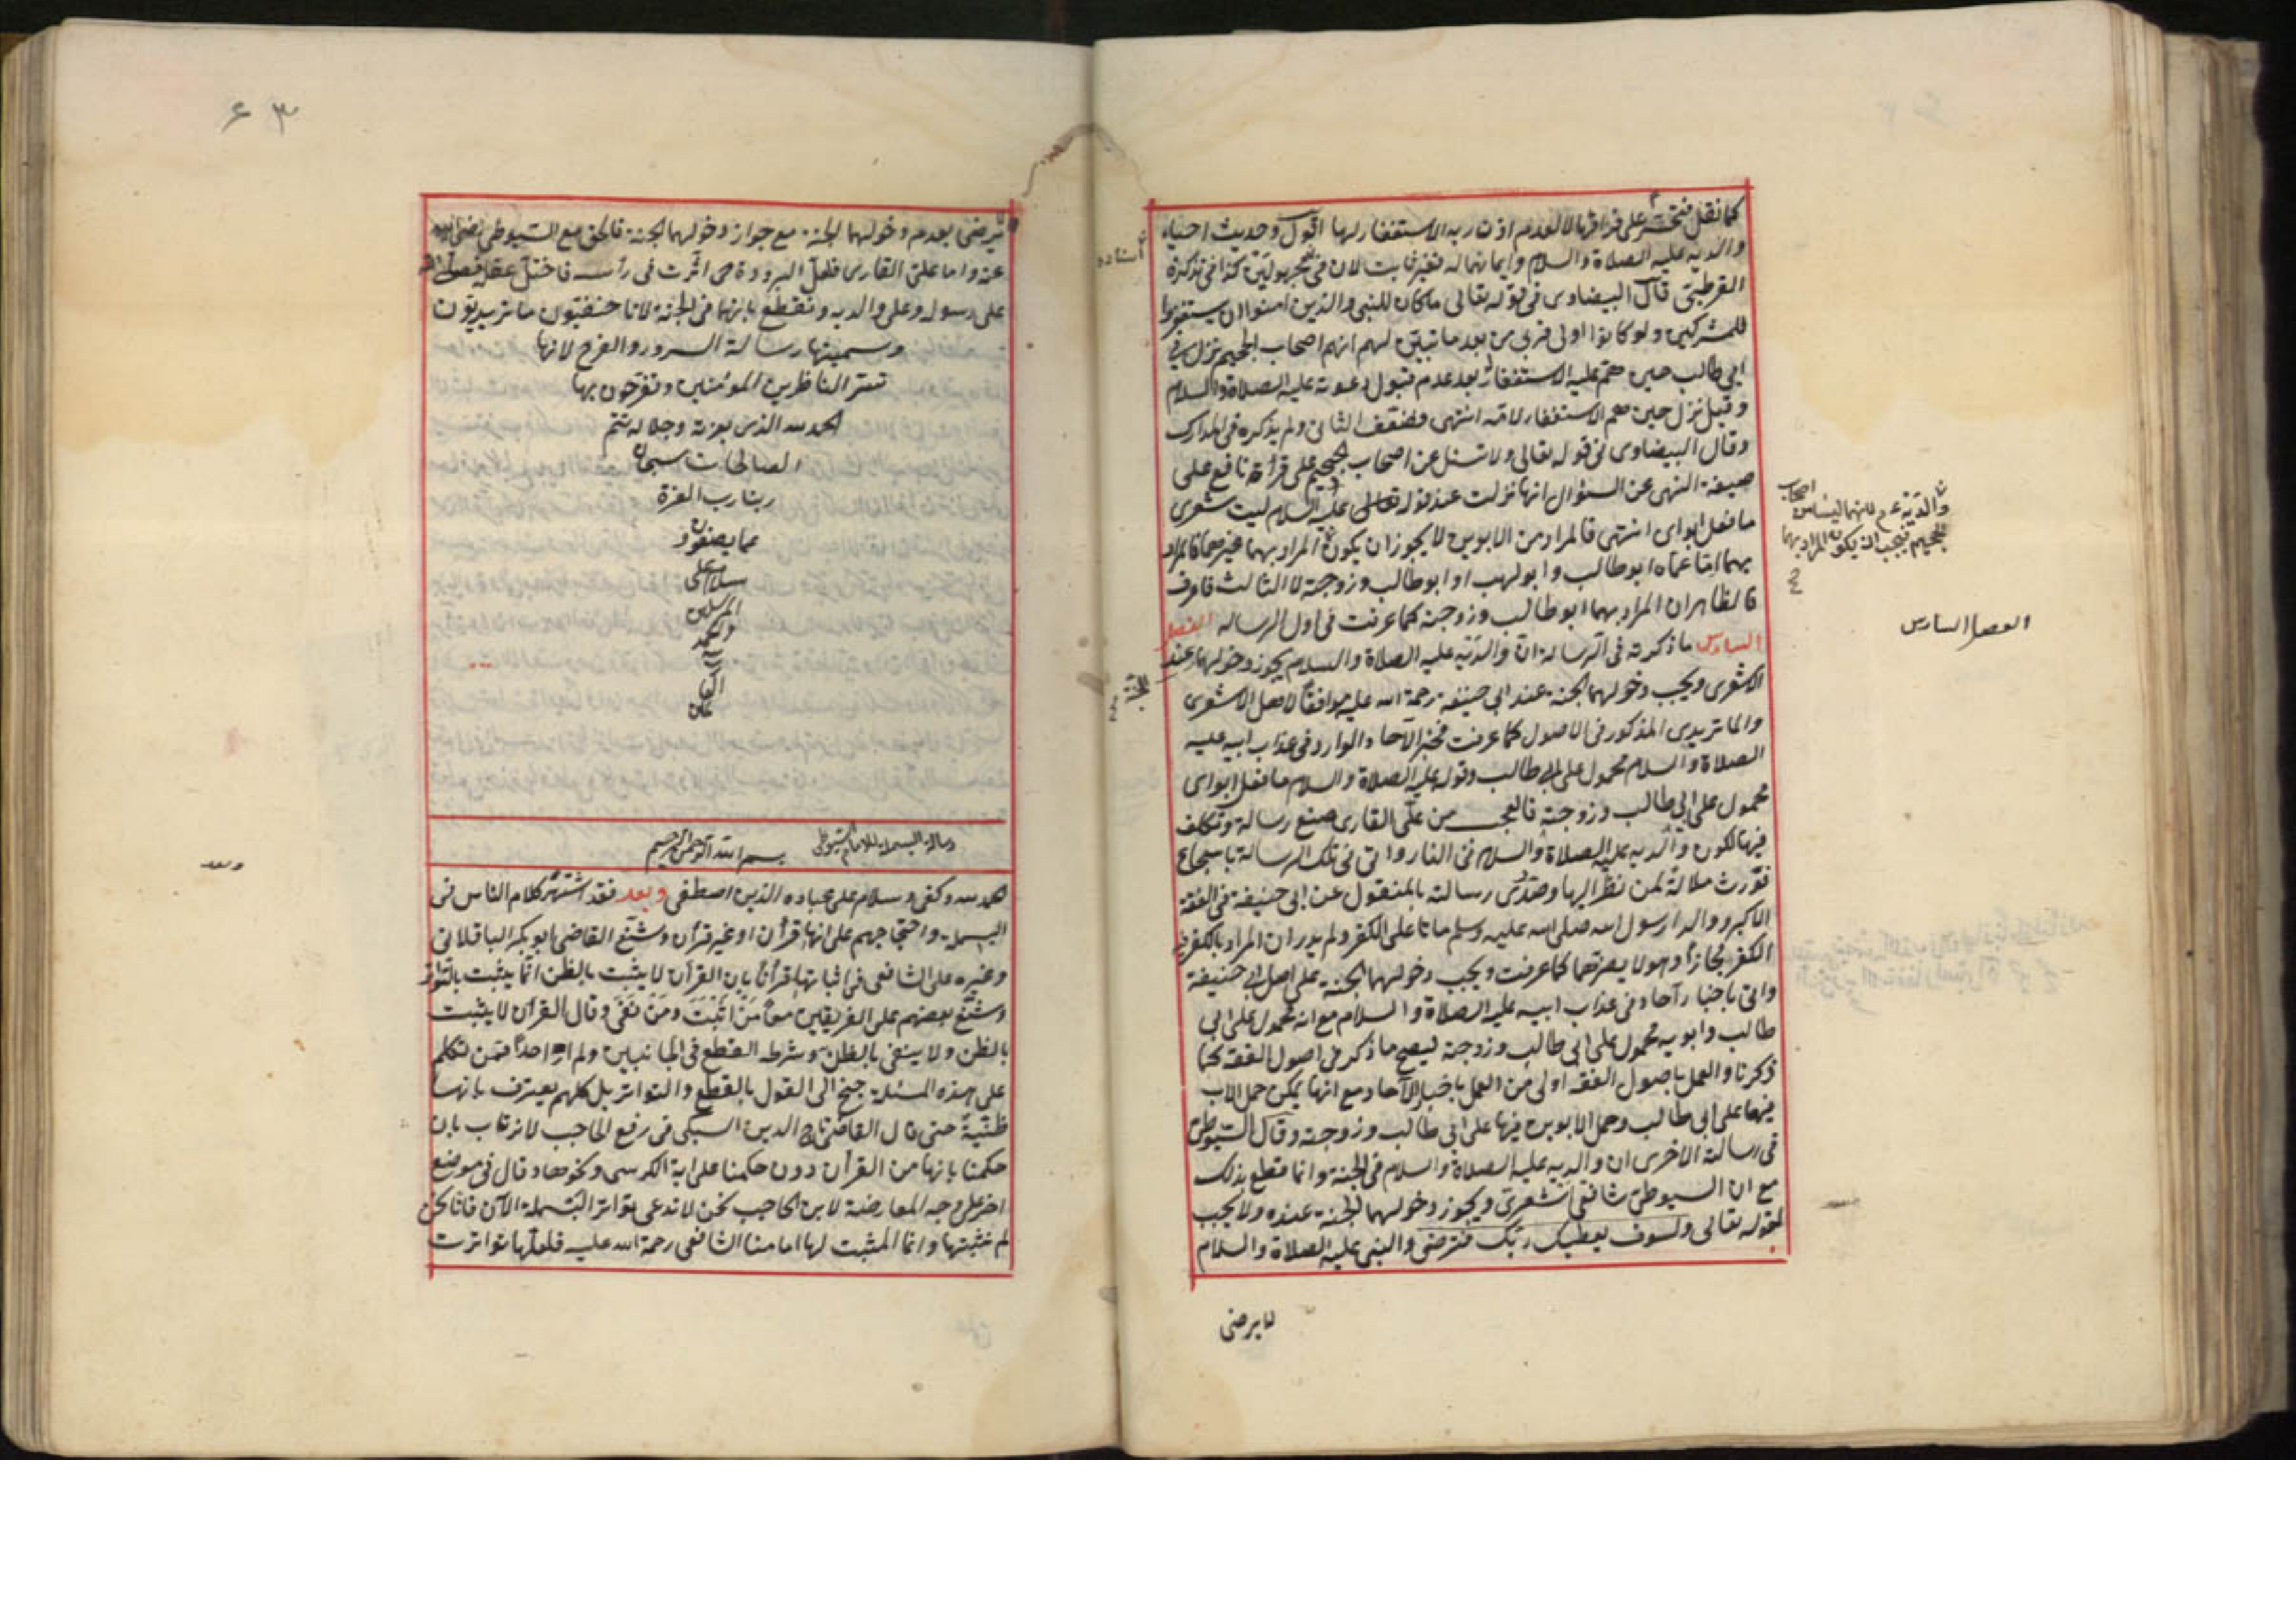 كما نقل فتحسر على فراقها لا لعدم اذن ربه الاستغفار لها اقول وحديث احياء
والديه عليه الصلاة والسلام وايمانهما له فغير ثابت لان في مجهولين كذا في تذكرة
القرطبي قال البيضاوى في قوله تعالى ما كان للنبي والذين امنوا ان يستغفروا
للمشركين ولو كانوا اولى قربى من بعد ما تبين لهم انهم اصحاب الجحيم نزل في
ابي طالب حين هم عليه الاستغفار بعد عدم قبول دعوته عليه الصلاة والسلام
وقيل نزل حين هم الاستغفار لامه انتهى فضعف الثانى ولم يذكره في المدارك
وقال البيضاوى في قوله تعالى ولا تسئل عن اصحاب الجحيم على قرأة نافع على
صيغة النهى عن السؤال انها نزلت عند قوله عليه السلام ليت شعرى
ما فعل ابواى انتهى فالمراد من الابوين لا يجوز ان يكون المراد بهما غيرهما فالمراد
بهما اما عماه ابو طالب وابو لهب او ابو طالب وزوجته لا الثالث فاعرف
فالظاهر ان المراد بهما ابو طالب وزوجته كما عرفت في اول الرساله الفصل
السادس ما ذكرته في الرسالة ان والديه عليه الصلاة والسلام يجوز دخولهما عند
الاشعرى ويجب دخولهما الجنة عند ابي حنيفة رحمة الله عليه موافقا لاصل الاشعرى
والماتريدى المذكور في الاصول كما عرفت فخبر الآحاد الوارد في عذاب ابيه عليه
الصلاة والسلام محمول على ابي طالب وقوله عليه الصلاة والسلام ما فعل ابواى
محمول على ابي طالب وزوجته فالعجب من على القارى صنع رسالة وتكلف
فيها لكون والديه عليه الصلاة والسلام في النار واتى في تلك الرسالة باسجاع
فورث ملالة لمن نظر اليها وصدر رسالته بالمنقول عن ابي حنيفة في الفقه
الاكبر ووالدا رسول الله صلى الله عليه وسلم ماتا على الكفر ولم يدر ان المراد بالكفر
الكفر مجازا وهو لا يضرهما كما عرفت ويجب دخولهما الجنة على اصل ابي حنيفة
واتى باخبار آحاد في عذاب ابيه عليه الصلاة والسلام مع انه محمول على ابي
طالب وابويه محمول على ابي طالب وزوجته ليصح ما ذكر في اصول الفقه كما
ذكرنا والعمل باصول الفقه اولى من العمل باخبار الآحاد مع انها يمكن حمل الاب
فيها على ابي طالب وحمل الابوين فيها على ابي طالب وزوجته وقال السيوطى
في رسالته الاخرى ان والديه عليه الصلاة والسلام في الجنة وانما قطع بذلك
مع ان السيوطى شافعى اشعرى ويجوز دخولهما الجنة عنده ولا يجب
لقوله تعالى ولسوف يعطيك ربك فترضى والنبي عليه الصلاة والسلام
لا يرضى
استاده
والديه عم لانهما ليسا من اصحاب
الجحيم فيجب ان يكون المراد بهما
الفصل السادس
الجنة
٤٣
لا يرضى بعدم دخولهما الجنة مع جواز دخولهما الجنة فالحق مع السيوطى رضى الله
عنه واما على القارى فلعل البرودة اثرت في رأسه فاختل عقله
على رسوله وعلى والديه ونقطع بانهما في الجنة لانا حنفيون ماتريديون
وسميتها رسالة السرور والفرح لانها
تسر الناظرين المؤمنين وتفرحون بها
الحمد لله الذى بعزته وجلاله تتم
الصالحات سبحان
ربنا رب العزة
عما يصفون
وسلام على
المرسلين
والحمد
لله
رب
العالمين
رسالة البسملة للامام السيوطى بسم الله الرحمن الرحيم
الحمد لله وكفى وسلام على عباده الذين اصطفى وبعد فقد اشتهر كلام الناس في
البسملة واحتجاجهم على انها قرآن او غير قرآن وشنع القاضى ابو بكر الباقلانى
وغيره على الشافعى في اثباتها قرآنا بان القرآن لا يثبت بالظن انما يثبت بالتواتر
وشنع بعضهم على الفريقين معا من اثبت ومن نفى وقال القرآن لا يثبت
بالظن ولا ينفى بالظن وشرط القطع في الجانبين ولم ار احدا ممن تكلم
على هذه المسئلة جنح الى القول بالقطع والتواتر بل كلهم يعترف بانها
ظنية حتى قال القاضى تاج الدين السبكى في رفع الحاجب لا نرتاب بان
حكمنا بانها من القرآن دون حكمنا على اية الكرسى ونحوها وقال في موضع
اخر على وجه المعارضة لابن الحاجب نحن لا ندعى تواتر البسملة الآن فانا نحن
لم نثبتها وانما المثبت لها امامنا الشافعى رحمة الله عليه فلعلها تواترت
وبعد